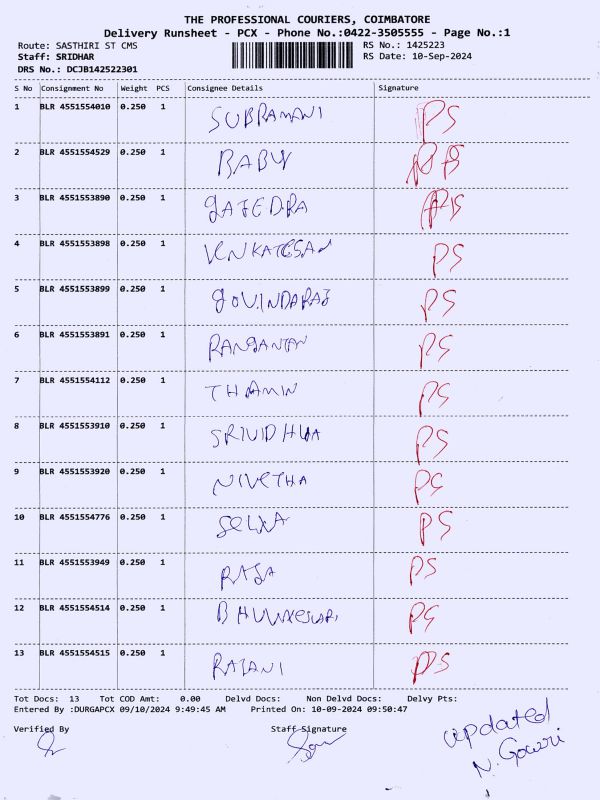 THE PROFESSIONAL COURIERS, COIMBATORE
Delivery Runsheet - PCX - Phone No.:0422-3505555 - Page No.:1
Route: SASTHIRI ST CMS RS No.: 1425223
Staff: SRIDHAR RS Date: 10-Sep-2024
DRS No.: DCJB142522301
S No Consignment No Weight PCS Consignee Details Signature
1 BLR 4551554010 0.250 1 SUBRAMANI PS
2 BLR 4551554529 0.250 1 BABY PS
3 BLR 4551553890 0.250 1 GAJEDRA PS
4 BLR 4551553898 0.250 1 VENKATESAN PS
5 BLR 4551553899 0.250 1 GOVINDARAJ PS
6 BLR 4551553891 0.250 1 RANGANTAN PS
7 BLR 4551554112 0.250 1 THAMIN PS
8 BLR 4551553910 0.250 1 SRIVIDHYA PS
9 BLR 4551553920 0.250 1 NIVETHA PS
10 BLR 4551554776 0.250 1 SELVA PS
11 BLR 4551553949 0.250 1 RAJA PS
12 BLR 4551554514 0.250 1 PS
13 BLR 4551554515 0.250 1 RAJANI PS
Tot Docs: 13 Tot COD Amt: 0.00 Delvd Docs: Non Delvd Docs: Delvy Pts:
Entered By :DURGAPCX 09/10/2024 9:49:45 AM Printed On: 10-09-2024 09:50:47
Verified By Staff Signature
updated
N. Gowri